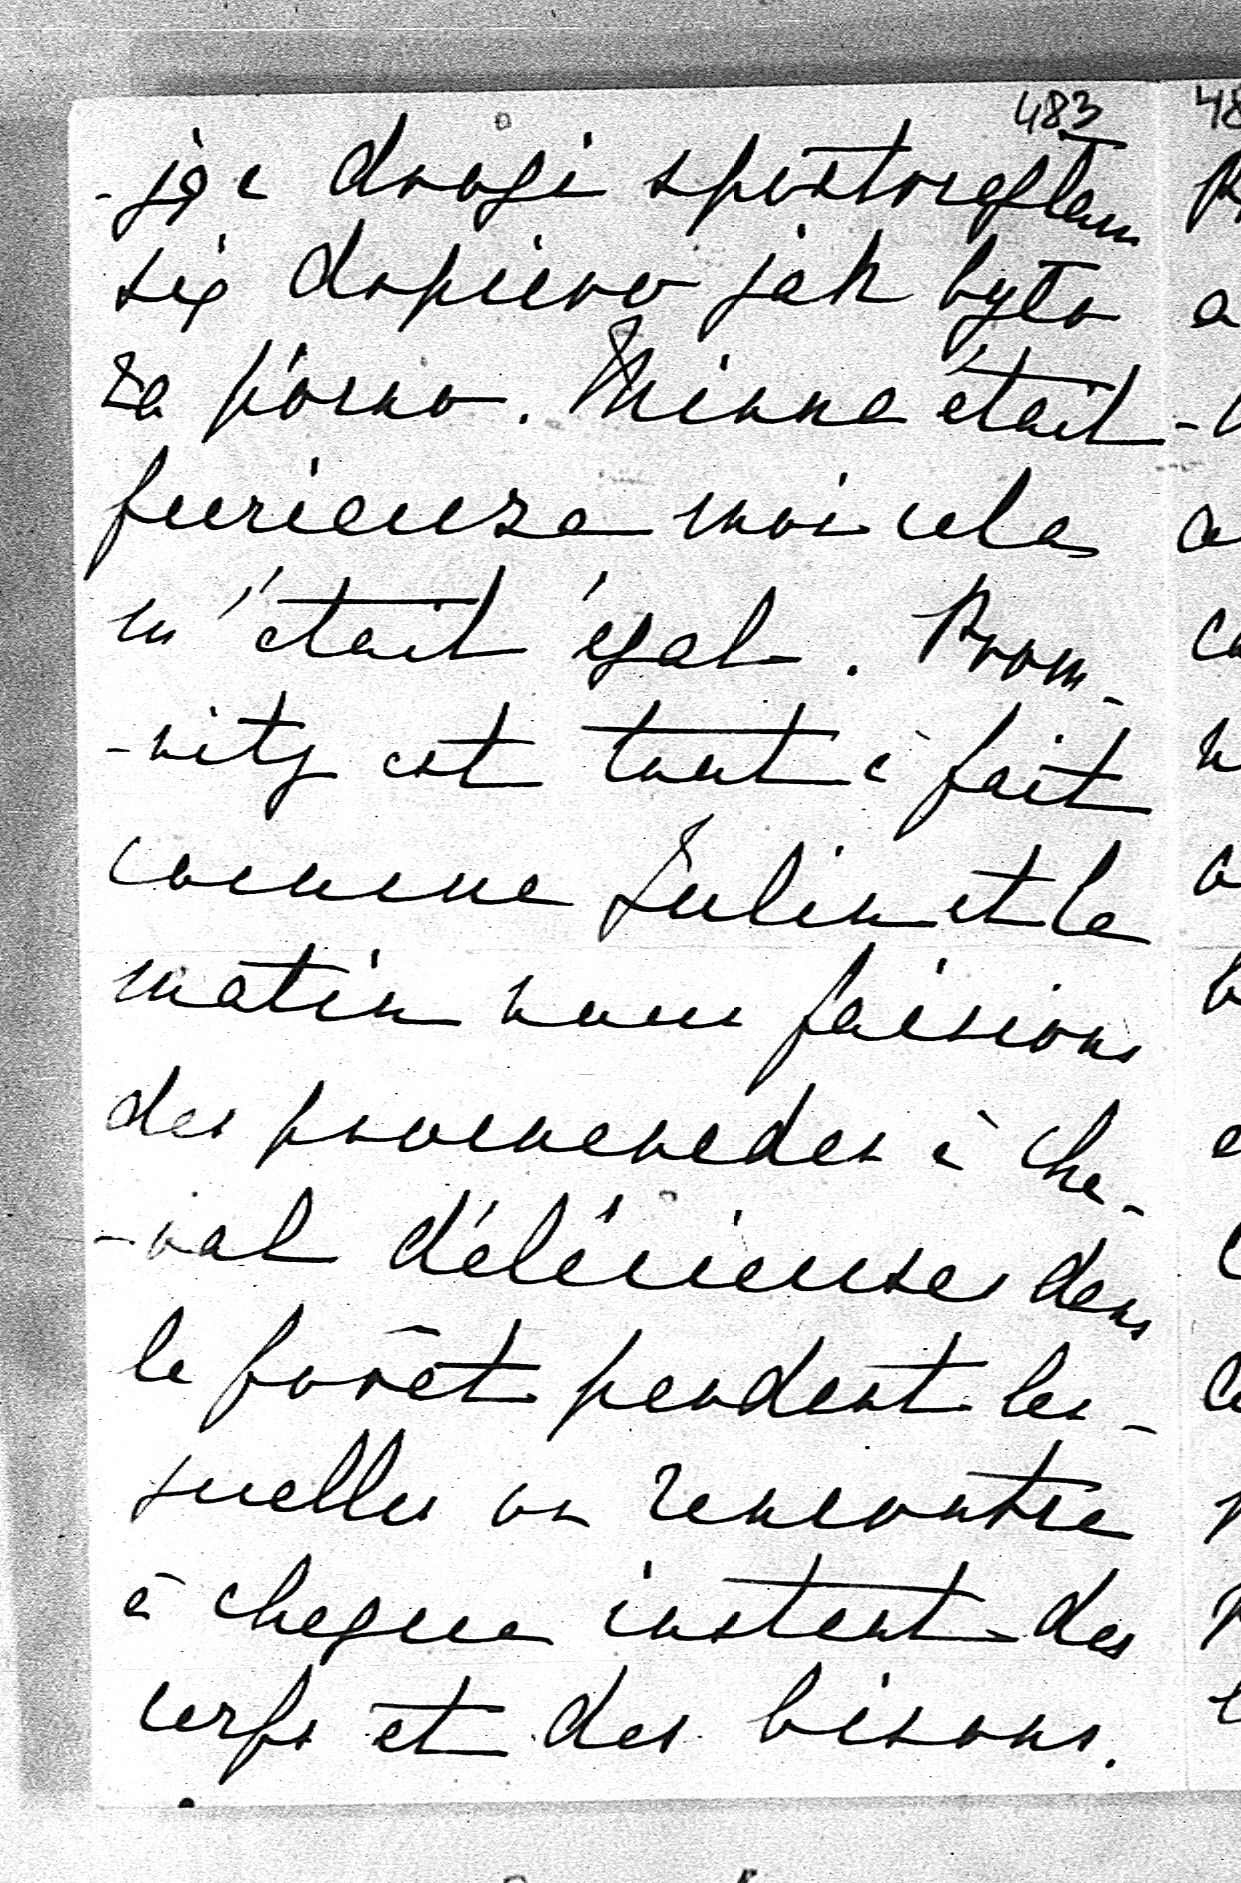 483
-jąc drogi spostrzegłam
się dopiero jak było
za późno. Minna était
furieuse moi cela
m'était égal. Prom-
-nitz est tout à fait
comme Julin et le
matin nous faisions
des promenades à che-
-val délicieuses dans
la forêt pendant les-
quelles on rencontre
à chaque instant des
cerfs et des bisons.